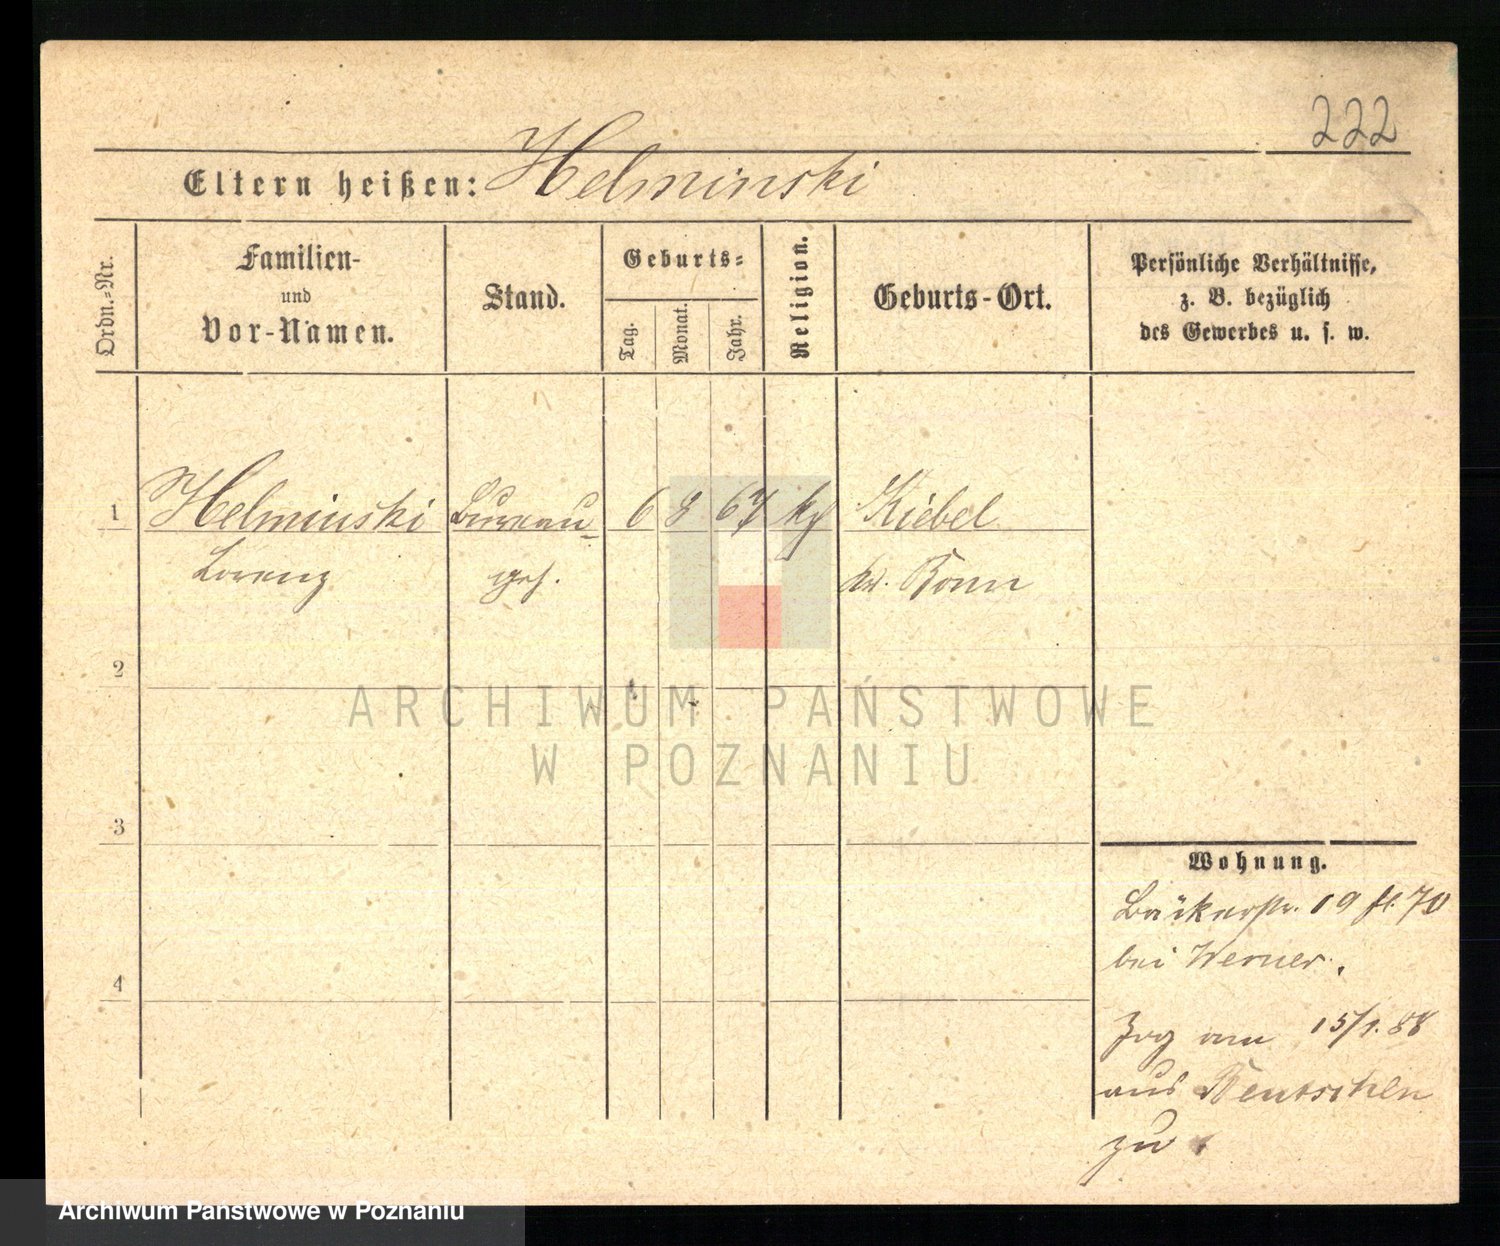 222
Eltern heißen: Helminski
Ordn.=Nr.
Familien-
und
Vor-Namen.
Stand.
Geburts=
Tag.
Monat.
Jahr.
Religion.
Geburts-Ort.
Persönliche Verhältnisse,
z. B. bezüglich
des Gewerbes u. s. w.
1 Helminski Bureau= 6 8 67 Kiebel
Lorenz geh. Bomst
2
3
4
Wohnung.
Bäckerstr. 19 70
bei Werner.
Zog am 15/1. 88
aus Bentschen
zu
ARCHIWUM PAŃSTWOWE
W POZNANIU
Archiwum Państwowe w Poznaniu